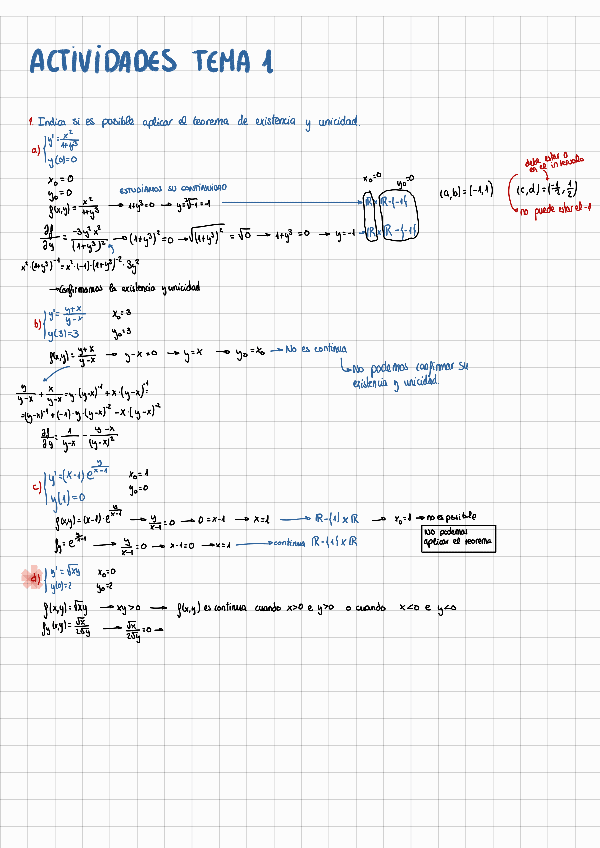 ACTIVIDADES TEMA 1
1. Indica si es posible aplicar el teorema de existencia y unicidad.
a) { y' = x²/(1+y³)
y(0)=0
x₀ = 0
y₀ = 0
ESTUDIAMOS SU CONTINUIDAD
f(x,y) = x²/(1+y³) → 1+y³=0 → y=∛-1 = -1 → ℝ × ℝ-{-1}
x₀=0 y₀=0
(a,b) = [-1,1)
debe estar 0 en el intervalo
(c,d) = (-1/2, 1/2)
no puede estar el -1
∂f/∂y = -3y²x²/(1+y³)² → (1+y³)² = 0 → √(1+y³)² = √0 → 1+y³ = 0 → y=-1 → ℝ × ℝ-{-1}
x²·(1+y³)⁻¹ = x²·(-1)·(1+y³)⁻²·3y²
→ Confirmamos la existencia y unicidad
b) { y' = (y+x)/(y-x) x₀=3
y(3)=3 y₀=3
f(x,y) = (y+x)/(y-x) → y-x=0 → y=x → y₀=x₀ → No es continua
↳ No podemos confirmar su
existencia y unicidad.
y/(y-x) + x/(y-x) = y·(y-x)⁻¹ + x·(y-x)⁻¹ =
=(y-x)⁻¹ + (-1)·y·(y-x)⁻² - x·(y-x)⁻²
∂f/∂y = 1/(y-x) - (y-x)/(y-x)²
c) { y' = (x-1) e^(y/(x-1)) x₀=1
y(1)=0 y₀=0
f(x,y) = (x-1)·e^(y/(x-1)) → y/(x-1) = 0 → 0=x-1 → x=1 → ℝ-{1} × ℝ → x₀=1 → no es posible
fy = e^(y/(x-1)) → y/(x-1) = 0 → x-1=0 → x=1 → continua ℝ-{1} × ℝ
No podemos
aplicar el teorema
d) { y' = √xy x₀=0
y(0)=2 y₀=2
f(x,y) = √xy → xy>0 → f(x,y) es continua cuando x>0 e y>0 o cuando x<0 e y<0
fy(x,y) = √x/2√y → √x/2√y = 0 →